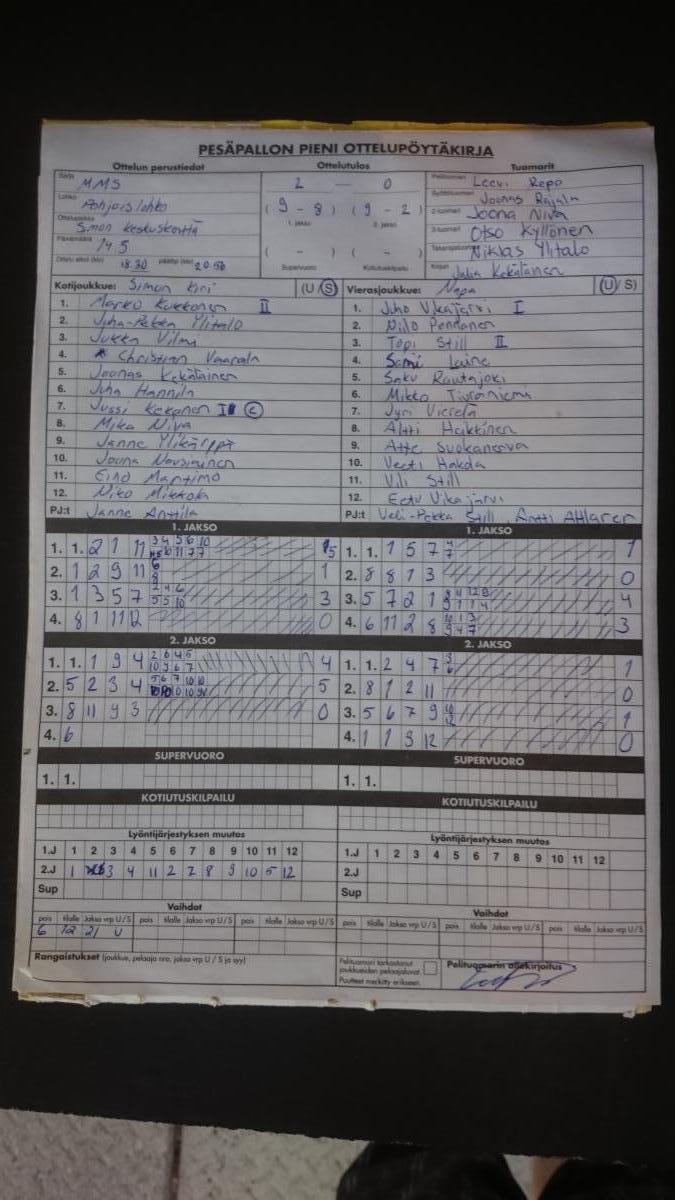 PESÄPALLON PIENI OTTELUPÖYTÄKIRJA
Ottelun perustiedot Ottelutulos Tuomarit
Sarja MMS
Lohko Pohjoislohko
Ottelupaikka Simon keskuskenttä
Päivämäärä 14.5
Ottelu alkoi (klo) 18.30 päättyi (klo) 20.56
2 — 0
( 9 - 8 ) ( 9 - 2 )
1. jakso 2. jakso
( - ) ( - )
Supervuoro Kotiutuskilpailu
Pelituomari Leevi Repo
Syöttötuomari Joonas Rajala
2-tuomari Joona Niva
3-tuomari Otso Kyllönen
Takarajatuomari Niklas Ylitalo
Kirjuri Julia Kekäläinen
Kotijoukkue: Simon Kiri (U / S) Vierasjoukkue: Napa (U / S)
1. Marko Kukkonen II 1. Juho Vikajärvi I
2. Juha-Pekka Ylitalo 2. Niilo Pendonen
3. Jukka Vilmi 3. Topi Still II
4. Christian Vaarala 4. Sami Laine
5. Joonas Kekäläinen 5. Saku Rautajoki
6. Juha Hannila 6. Mikko Tiuraniemi
7. Jussi Kekonen I C 7. Jyri Vierelä
8. Mika Niva 8. Altti Heikkinen
9. Janne Ylikärppä 9. Atte Suokanerva
10. Joona Nousiainen 10. Veeti Hakola
11. Eino Martimo 11. Vili Still
12. Niko Mikkola 12. Eetu Vikajärvi
PJ:t Janne Anttila PJ:t Veli-Pekka Still, Antti Ahlgren
1. JAKSO 1. JAKSO
1. 1. 2 1 11 5 1. 1. 1 5 7 1
2. 1 2 9 11 1 2. 8 8 1 3 0
3. 1 3 5 7 3 3. 5 7 2 1 4
4. 8 1 11 12 0 4. 6 11 2 8 3
2. JAKSO 2. JAKSO
1. 1. 1 9 4 4 1. 1. 2 4 7 1
2. 5 2 3 4 5 2. 8 1 2 11 0
3. 8 11 9 3 0 3. 5 6 7 9 1
4. 6 4. 1 1 3 12 0
SUPERVUORO SUPERVUORO
1. 1. 1. 1.
KOTIUTUSKILPAILU KOTIUTUSKILPAILU
Lyöntijärjestyksen muutos Lyöntijärjestyksen muutos
1.J 1 2 3 4 5 6 7 8 9 10 11 12 1.J 1 2 3 4 5 6 7 8 9 10 11 12
2.J 1 3 4 11 2 7 8 9 10 5 12 2.J
Sup Sup
Vaihdot Vaihdot
pois tilalle Jakso vrp U/S pois tilalle Jakso vrp U/S pois tilalle Jakso vrp U/S pois tilalle Jakso vrp U/S pois tilalle Jakso vrp U/S pois tilalle Jakso vrp U/S
6 12 21 U
Rangaistukset (joukkue, pelaaja nro, jakso vrp U / S ja syy)
Pelituomari tarkastanut joukkueiden pelaajaluvat.
Puutteet merkitty erikseen.
Pelituomarin allekirjoitus